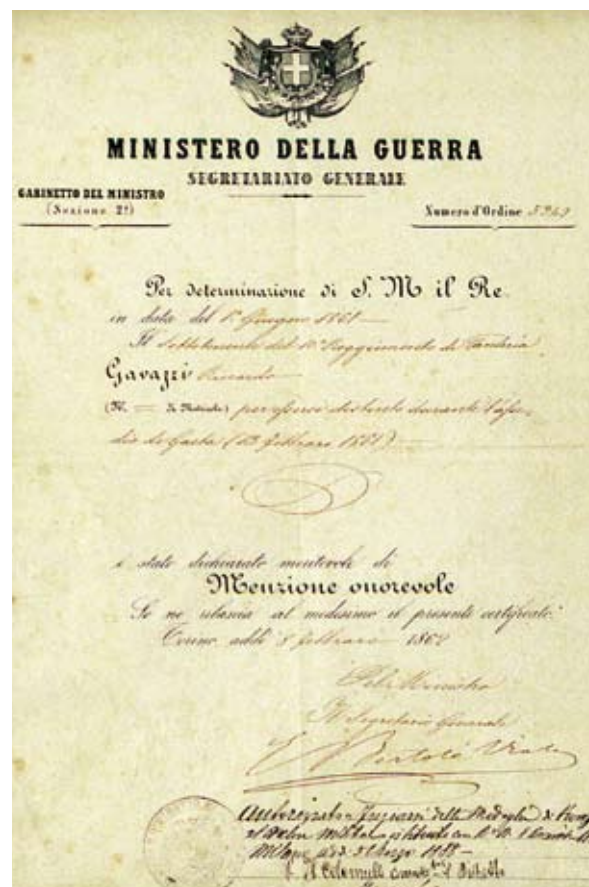 MINISTERO DELLA GUERRA
SEGRETARIATO GENERALE
GABINETTO DEL MINISTRO
(Sezione 2ª)
Numero d'Ordine
Per determinazione di S. M il Re
in data del 1º Giugno 1861
Il Sottotenente del Reggimento di Fanteria
Gavazzi Riccardo
(N. = di Matricola) per essersi distinto durante l'asse-
dio di Gaeta (13 febbraio 1861)
è stato dichiarato meritevole di
Menzione onorevole
Se ne rilascia al medesimo il presente certificato.
Torino addì 8 febbraio 1862
Pel Ministro
Il Segretario Generale
E Bertolè Viale
Autorizzato a fregiarsi della Medaglia di Bronzo
al Valor Militare istituita con R. D.
Milano
Il Colonnello